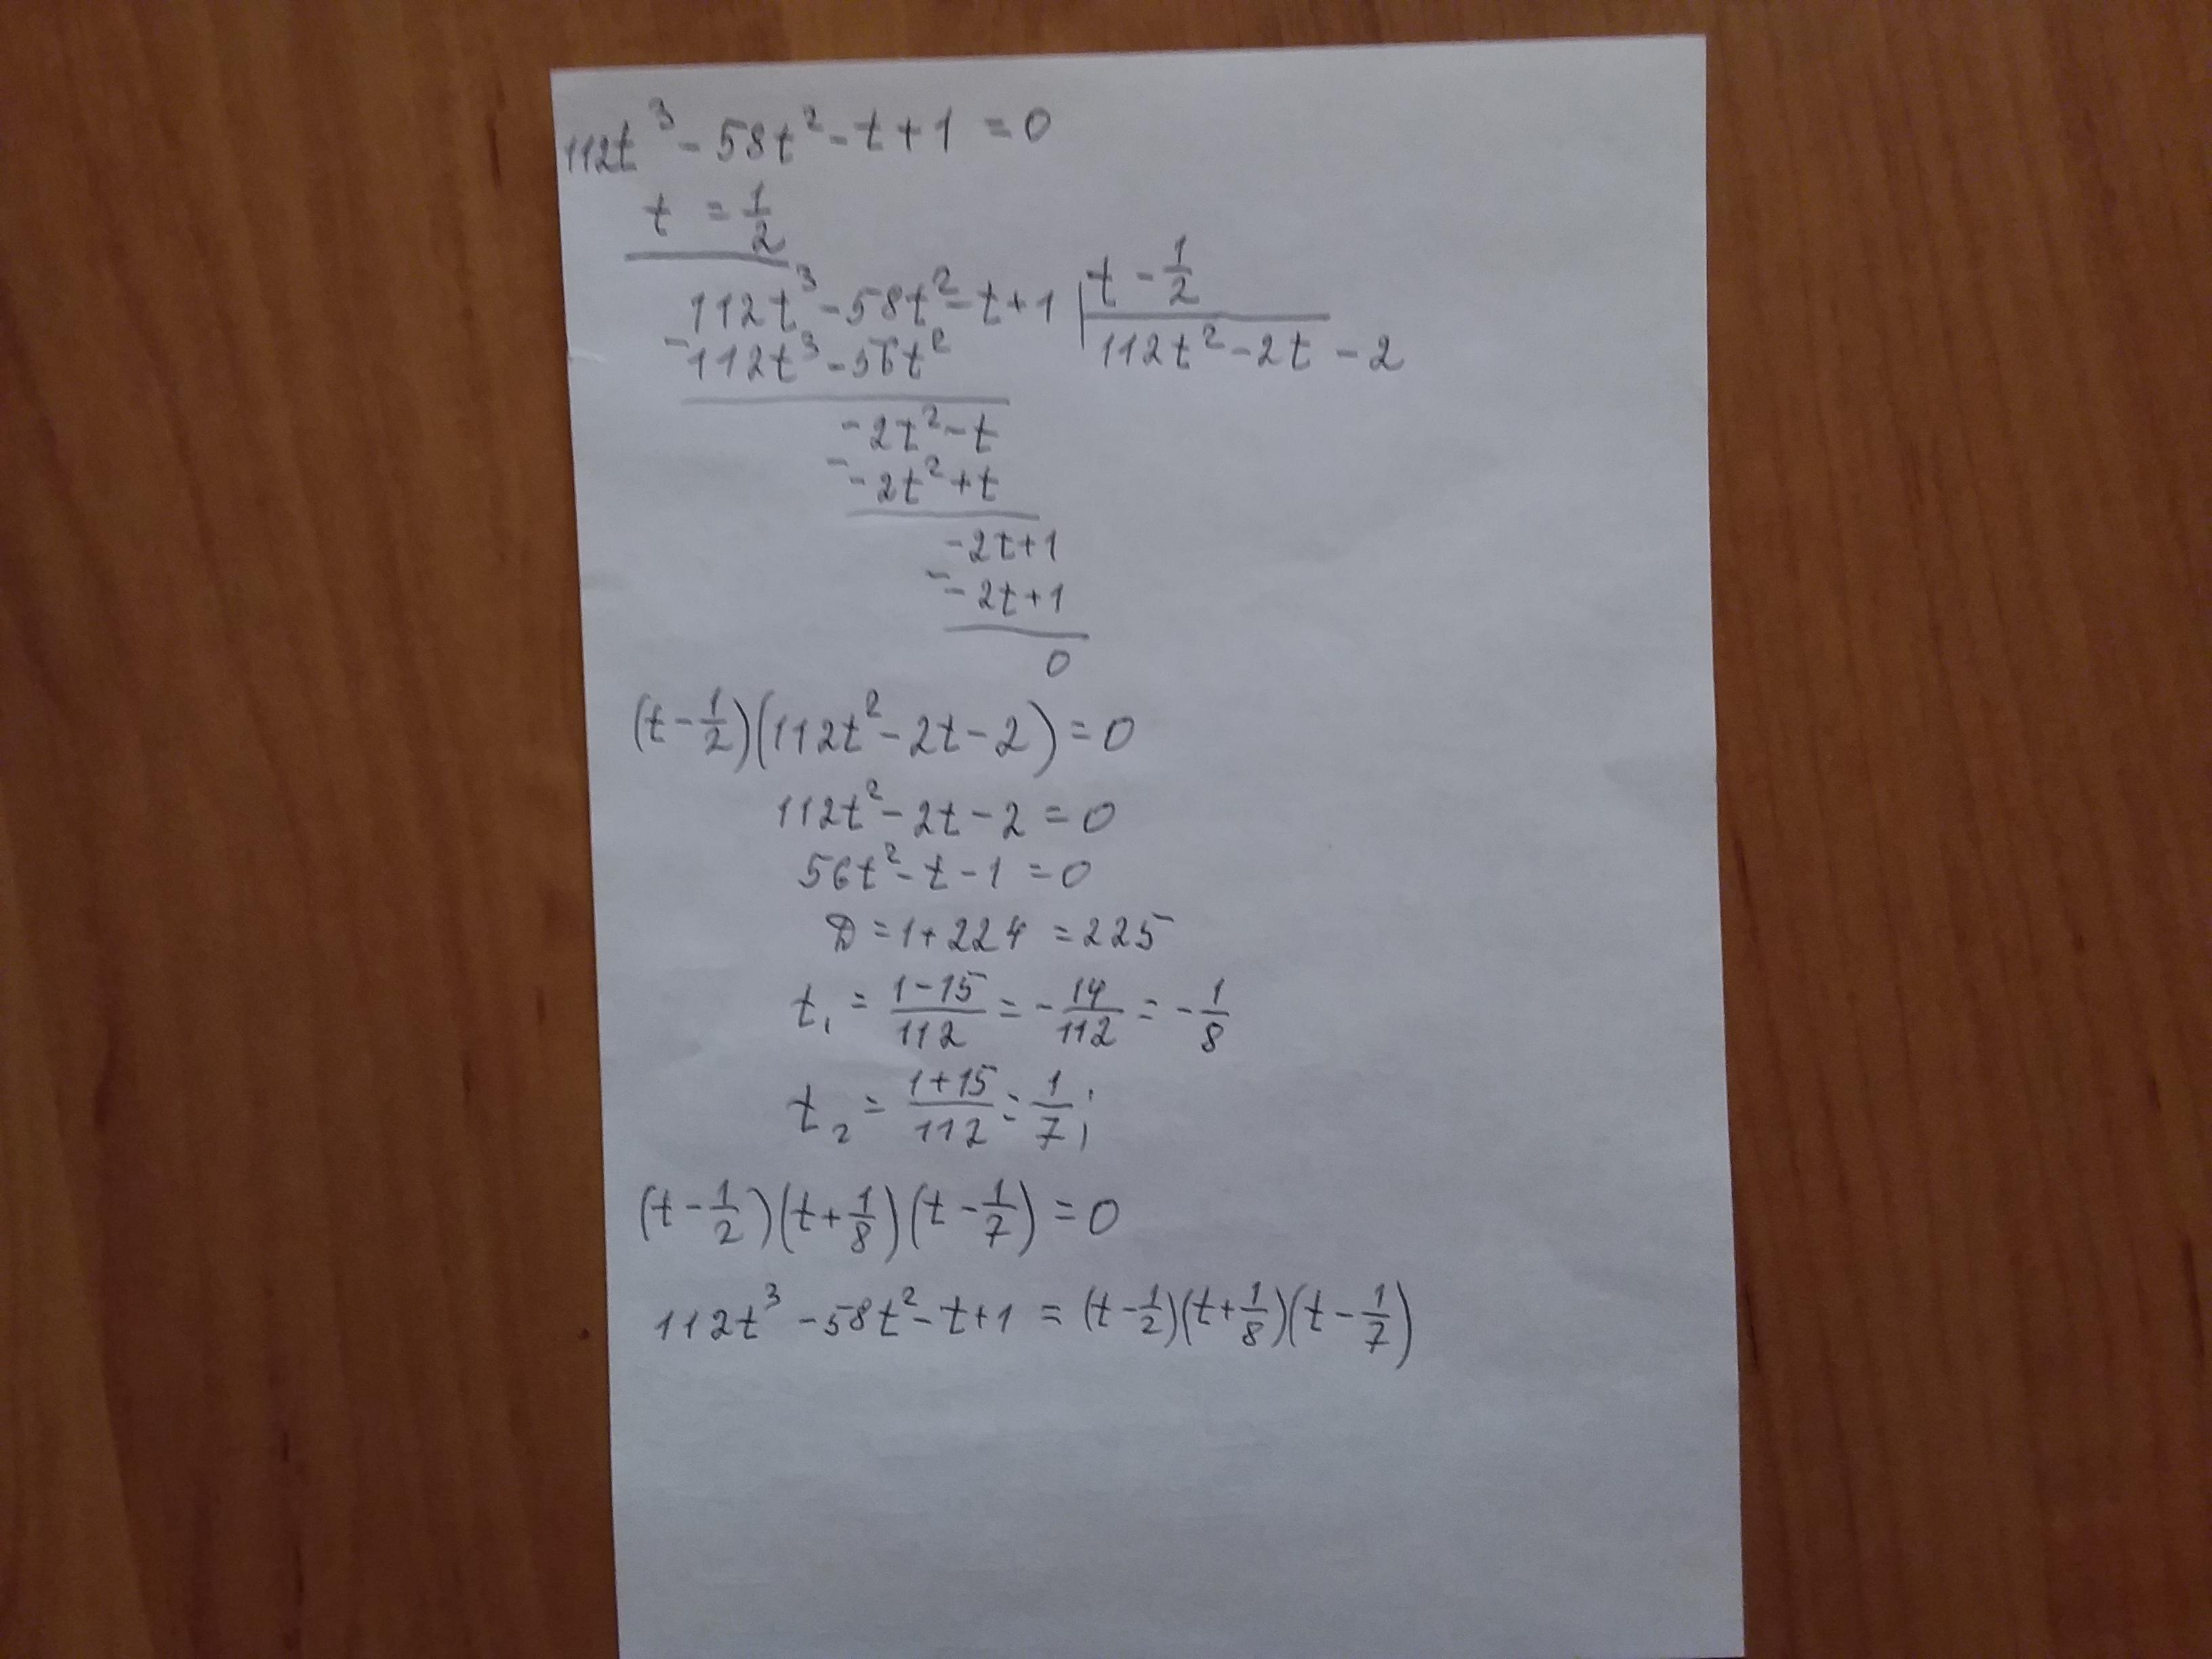 112t³ - 58t² - t + 1 = 0
t = 1/2
112t³ - 58t² - t + 1 | t - 1/2
- 112t³ - 56t² | 112t² - 2t - 2
-2t² - t
- -2t² + t
-2t + 1
- -2t + 1
0
(t - 1/2)(112t² - 2t - 2) = 0
112t² - 2t - 2 = 0
56t² - t - 1 = 0
D = 1 + 224 = 225
t₁ = (1 - 15)/112 = - 14/112 = - 1/8
t₂ = (1 + 15)/112 = 1/7;
(t - 1/2)(t + 1/8)(t - 1/7) = 0
112t³ - 58t² - t + 1 = (t - 1/2)(t + 1/8)(t - 1/7)